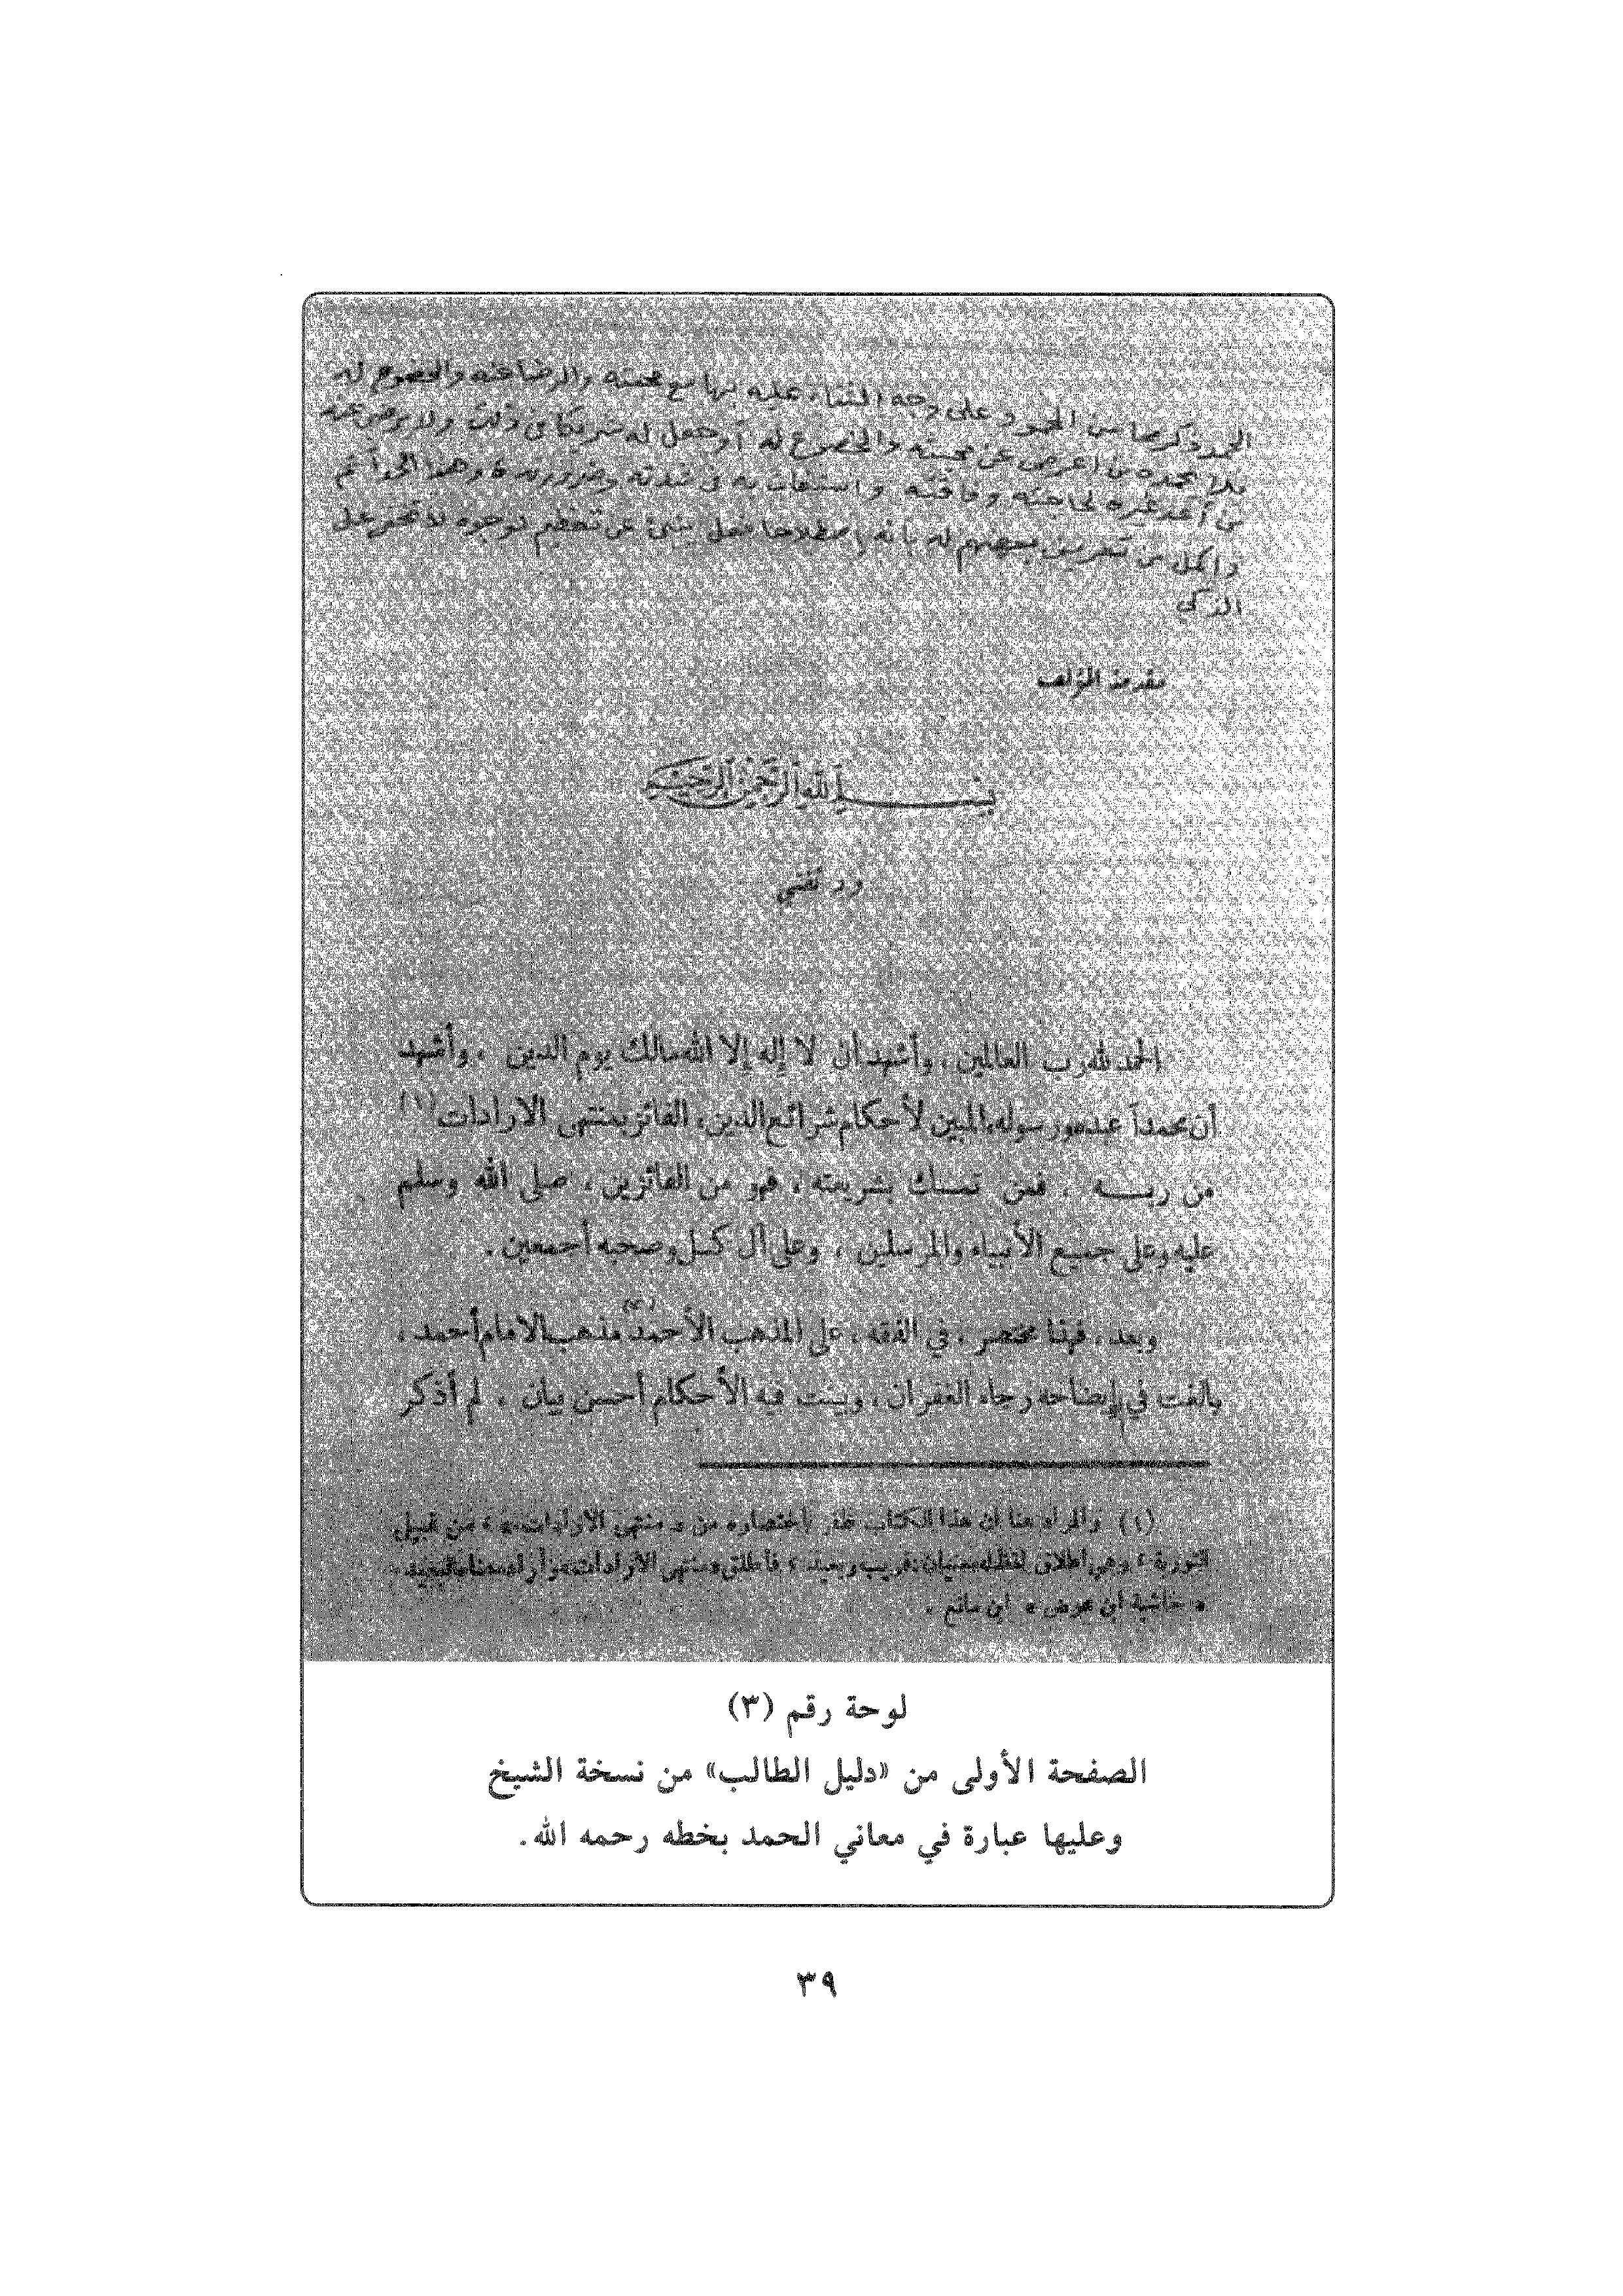 الحمد ذكر صفات المحمود على وجه الثناء عليه بها مع محبته والرضا عنه والخضوع له
فلا يحمده من أعرض عن محبته والخضوع له أو جعل له شريكا في ذلك ولا يرضى عنه
من أعد غيره لحاجته وفاقته واستغاث به في شدته وضرورته وهذا الحد أتم
وأكمل من تعريف بعضهم له بأنه إصطلاحا فعل ينبئ عن تعظيم لوجوه لا تخفى على
الذكي
مقدمة المؤلف
بسم الله الرحمن الرحيم
وبه ثقتي
الحمد لله رب العالمين ، وأشهد أن لا إله إلا الله مالك يوم الدين ، وأشهد
أن محمداً عبده ورسوله المبين لأحكام شرائع الدين ، الفائز بمنتهى الارادات (١)
من ربه ، فمن تمسك بشريعته ، فهو من الفائزين ، صلى الله وسلم
عليه وعلى جميع الأنبياء والمرسلين ، وعلى آل كل وصحبه أجمعين .
وبعد ، فهذا مختصر ، في الفقه ، على المذهب الأحمد مذهب الامام أحمد ،
بالغت في إيضاحه رجاء الغفران ، وبينت فيه الأحكام أحسن بيان ، لم أذكر
(١) والمراد هنا أن هذا الكتاب باختصاره من « منتهى الارادات » ، من قبيل
التورية ، وهي اطلاق لفظ له معنيان : قريب وبعيد ، فأطلق «منتهى الارادات» وأراد
« حاشية ابن عوض » ابن مانع .
لوحة رقم (٣)
الصفحة الأولى من «دليل الطالب» من نسخة الشيخ
وعليها عبارة في معاني الحمد بخطه رحمه الله.
٣٩